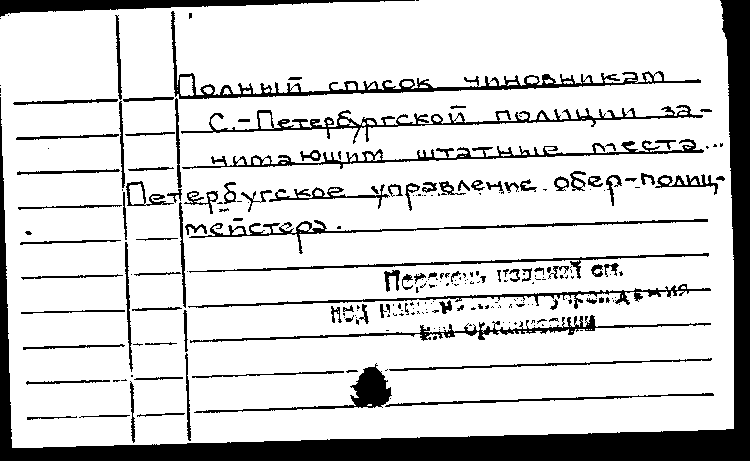 Полный список чиновникам
С.-Петербургской полиции за-
нимающим штатные места...
Петербугское управление обер-полиц-
мейстера.
Перечень изданий см.
под наименованием учреждения
или организации